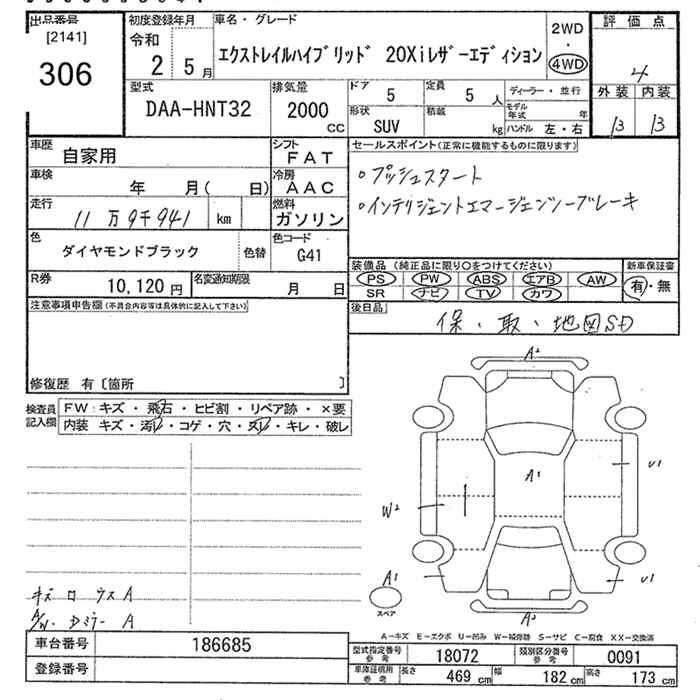 出品番号
[2141]
306
初度登録年月
令和
2 5月
車名・グレード
エクストレイルハイブリッド 20Xiレザーエディション
2WD
・
4WD
評価点
4
外装 内装
B B
型式
DAA-HNT32
排気量
2000
CC
ドア 5
定員 5 人
形状
SUV
積載
kg
ディーラー・並行
モデル年式 年
ハンドル 左・右
車歴
自家用
シフト
FAT
車検
年 月( 日)
冷房
AAC
走行
11万9千941 km
燃料
ガソリン
色
ダイヤモンドブラック
色替
色コード
G41
R券
10,120円
名変通知期限
月 日
セールスポイント(正常に機能するものに限ります)
○プッシュスタート
○インテリジェントエマージェンシーブレーキ
装備品(純正品に限り○をつけてください)
PS PW ABS エアB AW
SR ナビ TV カワ
新車保証書
有・無
後日品
保・取・地図SD
注意事項申告欄(不具合内容等は具体的に記入して下さい)
修復歴 有〔箇所 〕
検査員記入欄
FW:キズ・飛石・ヒビ割・リペア跡・×要
内装 キズ・汚レ・コゲ・穴・スレ・キレ・破レ
A2
A1
U1
W2
A1
U1
A2
スペア
キズ ロ ウス A
A/W・Dミラー A
A-キズ E-エクボ U-凹み W-補修跡 S-サビ C-腐食 XX-交換済
車台番号
186685
登録番号
型式指定番号
参考
18072
類別区分番号
参考
0091
車庫証明用
参考
長さ 469 cm
幅 182 cm
高さ 173 cm